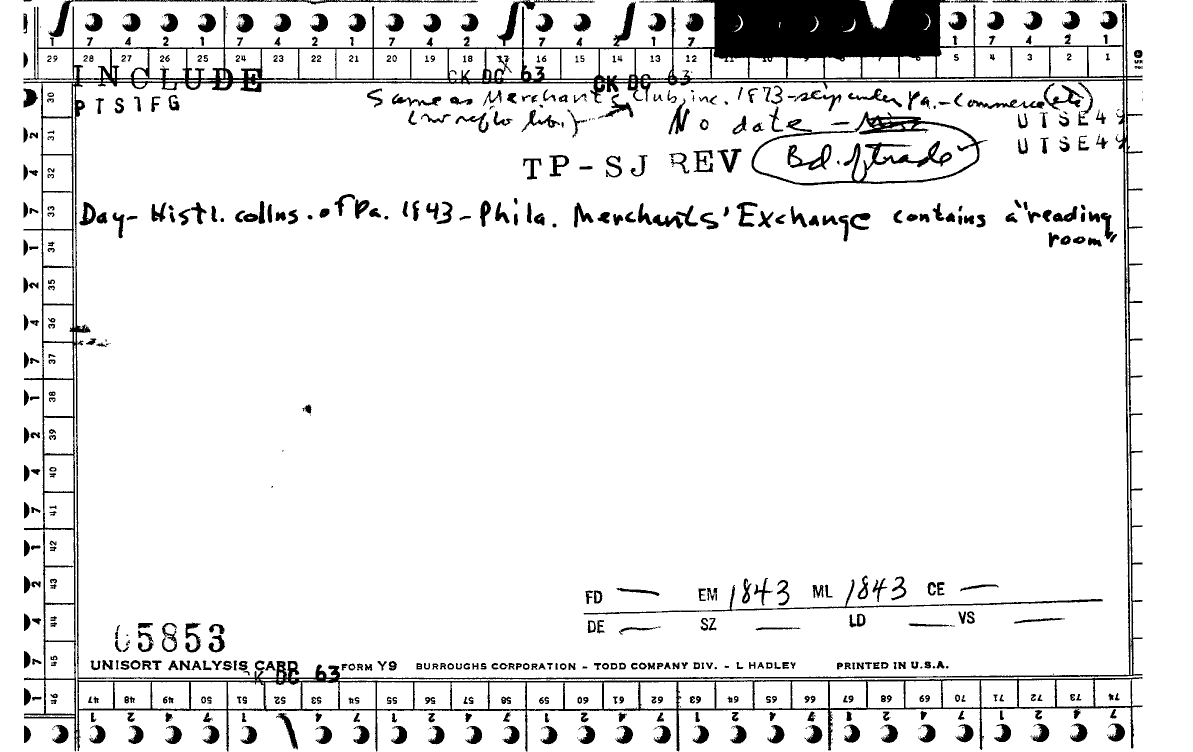 7 4 2 1 7 4 2 1 7 4 2 1 7 4 2 1 7 1 7 4 2 1
29 28 27 26 25 24 23 22 21 20 19 18 17 16 15 14 13 12 11 10 9 8 7 6 5 4 3 2 1
INCLUDE CK DC 63 CK DC 63
PTS1FG Same as Merchants Club, inc. 1873 - Pa. - Commerce (etc)
No date - UTSE49
TP-SJ REV Bd. of trade UTSE49
Day - Histl. collns. of Pa. 1843 - Phila. Merchants' Exchange contains a "reading
room"
30
31
32
33
34
35
36
37
38
39
40
41
42
43
44
45
46
FD — EM 1843 ML 1843 CE —
DE — SZ — LD — VS —
05853
UNISORT ANALYSIS CARD FORM Y9 BURROUGHS CORPORATION - TODD COMPANY DIV. - L HADLEY PRINTED IN U.S.A.
CK DC 63
47 48 49 50 51 52 53 54 55 56 57 58 59 60 61 62 63 64 65 66 67 68 69 70 71 72 73 74